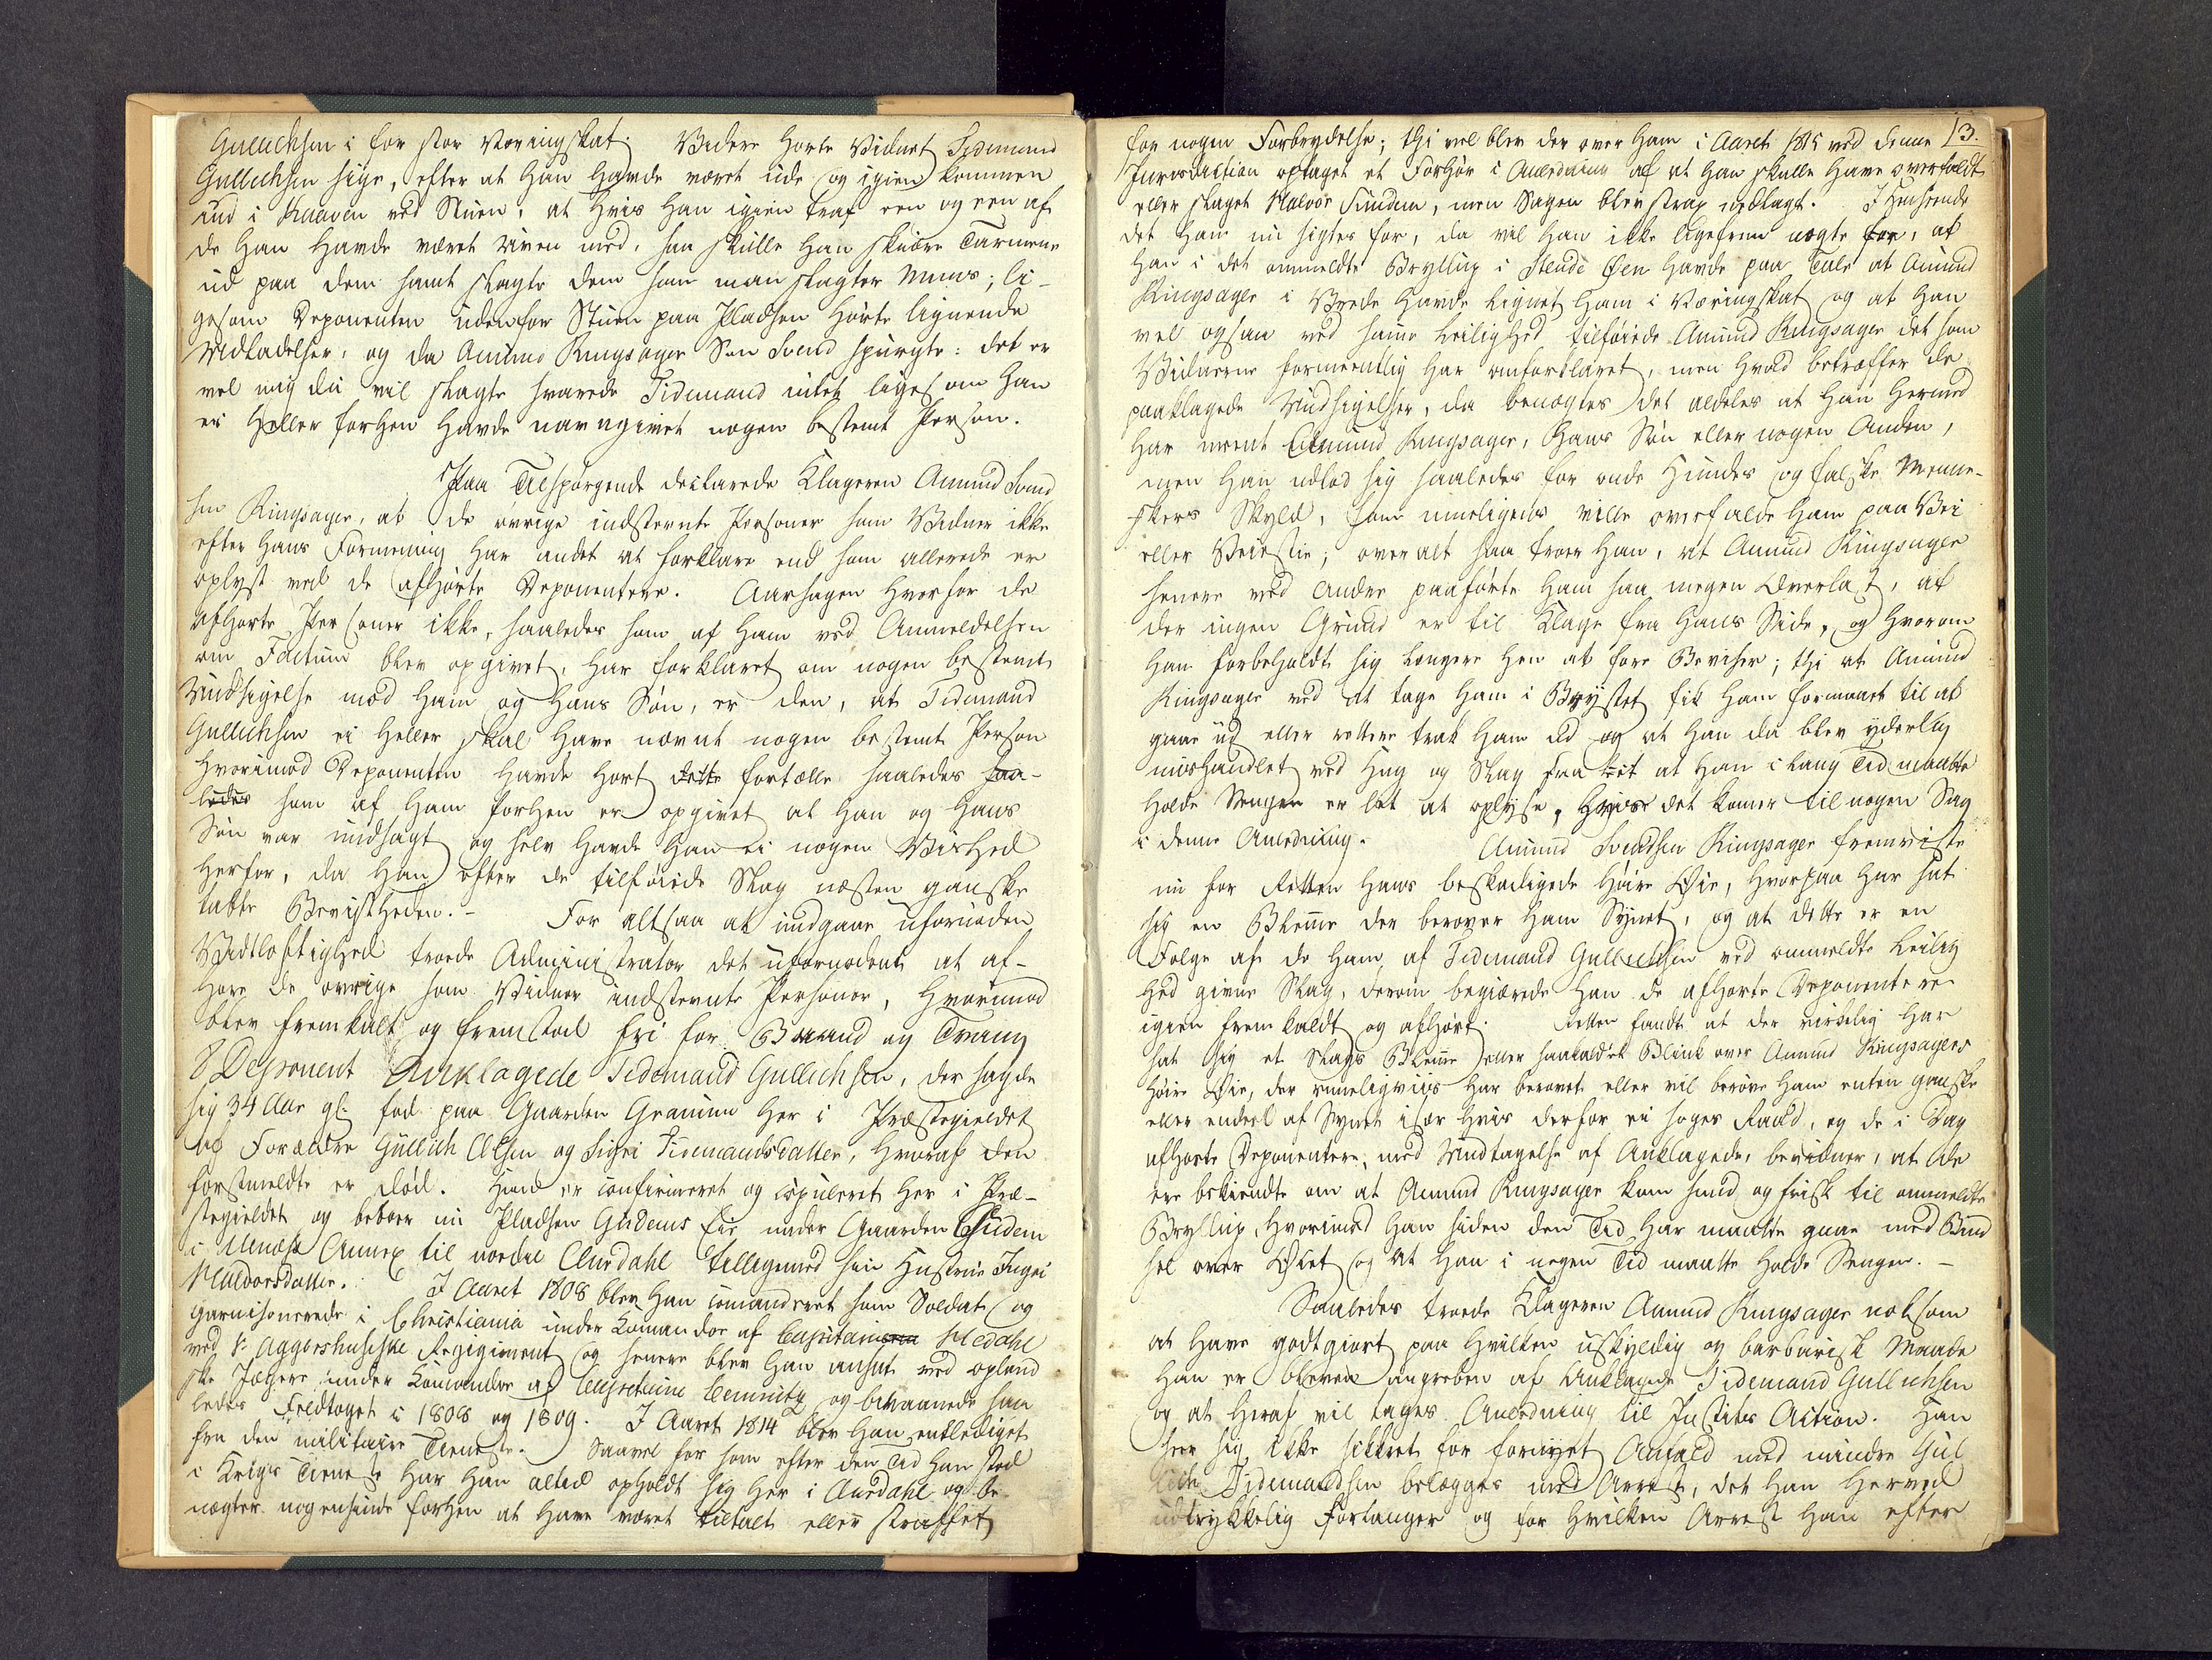 Gullichsen i for stor Væringskat. Videre hørte Vidnet Tidemand
Gullichsen sige, efter at han havde været ude og igien kommen
ind i Kaaven ved Stuen, at hvis han igien traf een og een af
de han havde været uven med, saa skulle han skiære Tarmene
ud paa dem samt slagte dem som man slagter Muus; li-
gesom Deponenten udenfor Stuen paa Pladsen hørte lignende
Udladelser, og da Amund Ringsager Søn Svend spurgte: det er
vel mig du vil slagte svarede Tidemand intet ligesom han
ei heller forhen havde navngivet nogen bestemt Person.
Paa Tilspørgende declarede Klageren Amund Svend
sen Ringsager, at de øvrige indstevnte Personer som Vidner ikke
efter hans Formening har andet at forklare end som allerede er
oplyst ved de afhørte Deponentere. Aarsagen hvorfor de
afhørte Personer ikke, saaledes som af ham ved Anmeldelsen
om Factum blev opgivet, har forklaret om nogen bestemt
Undsigelse mod ham og hans Søn, er den, at Tidemand
Gullichsen ei heller skal have nævnt nogen bestemt Person
hvorimod Deponenten havde hørt dette fortælle saaledes saa-
ledes som af ham forhen er opgivet at han og hans
Søn var undsagt og selv havde han ei nogen Vished
herfor, da han efter de tilføiede Slag næsten ganske
tabte Bevistheden.- For altsaa at undgaae ufornøden
Vidtløftighed troede Administrator det ufornødent at af-
høre de øvrige som Vidner indstevnte Personer, hvorimod
blev fremkaldt og fremstod fri for Baand og Tvang
8 Deponent Anklagede Tidemand Gullichsen, der sagde
sig 34 Aar gl. fød paa Gaarden Gravum her i Præstegieldet
af Forældre Gullich Olsen og Sigri Tidemandsdatter, hvoraf den
førstmeldte er død. Hand er confirmeret og copuleret her i Præ-
stegieldet og beboer nu Pladsen Gudems Eie under Gaarden Gudem
i Ulnæs Annex til nordre Aurdahl tilligemed sin Hustrue Ingri
Haldorsdatter. I Aaret 1808 blev han comanderet som Soldat og
garnisonerede i Christiania under Comandoe af Capitain Medahl
ved s: Aggershusiske Regigiment og senere blev han ansat ved opland
ske Jægere under Comandoe af Capitaine Cemnitz og bivaanede saa
ledes Feldtoget i 1808 og 1809. I Aaret 1814 blev han entlediget
fra den militaire Tieneste. Saavel før som efter den Tid han stod
i Krigs Tieneste har han altid opholdt sig her i Aurdahl og be-
nægter nogensinde forhen at have været tiltalt eller straffet
13.
for nogen Forbrydelse; thi vel blev der over ham i Aaret 1815 ved denne
Jurisdiction optaget et Forhør i Anledning af at han skulle have overfaldt
eller slaget Halvor Sundem, men Sagen blev strax nedlagt. I Henseende
det han nu sigtes for, da vil han ikke ligefrem nægte for, at
han i det ommeldte Bryllup i Stende Øen havde paa Tale at Amund
Ringsager i Vrede havde lignet ham i Væringskat og at han
vel ogsaa ved samme Leilighed tilføiede Amund Ringsager det som
Vidnerne formeentlig har omforklaret, men hvad betræffer de
paaklagede Undsigelser, da benægtes det aldeles at han hermed
har meent Amund Ringsager, hans Søn eller nogen Anden,
men han udlod sig saaledes for onde Hundes og falske Menne-
skers Skyld, som mueligens ville overfalde ham paa Vei
eller Veiestie; overalt saa troer han, at Amund Ringsager
senere med Andre paaførte ham saa megen Overlast, at
der ingen Grund er til Klage fra hans Side, og hvorom
han forbeholdt sig længere hen at føre Beviser; thi at Amund
Ringsager ved at tage ham i Brystet fik ham formaaet til at
gaae ud eller rettere trak ham ud og at han da blev yderlig
mishandlet ved Hug og Slag saa vit at han i lang Tid maatte
holde Sengen er let at oplyse, hvis det komer til nogen Sag
i denne Anledning. Amund Svendsen Ringsager fremviste
nu for Retten hans beskadigede høire Øie, hvorpaa har sat
sig en Blemme der berøver ham Synet, og at dette er en
Følge af de ham af Tidemand Gullichsen ved ommeldte Leilig
hed givne Slag, derom begiærede han de afhørte Deponentere
igien fremkaldt og afhørt. Retten fandt at der virkelig har
sat sig et Slags Blemme eller saakaldet Blink over Amund Ringsagers
høire Øie, der rimeligviis har berøvet eller vil berøve ham enten ganske
eller endeel af Synet især hvis derfor ei søges Raad, og de i Dag
afhørte Deponentere, med Undtagelse af Anklagede, bevidner, at de
ere bekiendte om at Amund Ringsager kom sund og frisk til ommeldte
Bryllup, hvorimod han siden den Tid har maattet gaae med Bind
sel over Øiet og at han i nogen Tid maatte holde Sengen.-
Saaledes troede Klageren Amund Ringsager noksom
at have godtgiort paa hvilken uskyldig og barbarisk Maade
han er bleven angreben af Anklagede Tidemand Gullichsen
og at heraf vil tages Anledning til Justits Action. Han
seer sig ikke sikkret for fornyet Anfald med mindre Gul
lich Tidemandsen belægges med Arrest, det han herved
udtrykkelig forlanger og for hvilken Arrest han efter